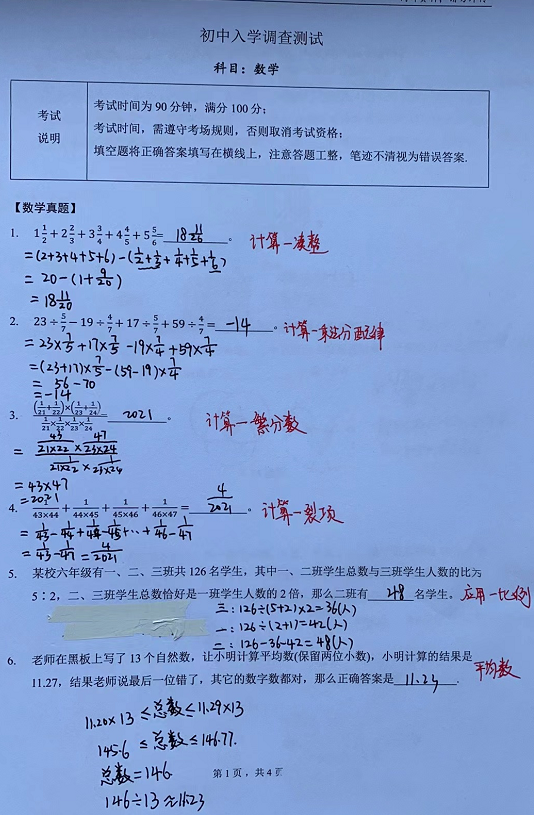 初中入学调查测试
科目：数学
考试
说明
考试时间为 90 分钟，满分 100 分；
考试时间，需遵守考场规则，否则取消考试资格；
填空题将正确答案填写在横线上，注意答题工整，笔迹不清视为错误答案.
【数学真题】
1. 1 1/2 + 2 2/3 + 3 3/4 + 4 4/5 + 5 5/6 = 18 11/20 。 计算一凑整
= (2+3+4+5+6) - (1/2+1/3+1/4+1/5+1/6)
= 20 - (1+9/20)
= 18 11/20
2. 23 ÷ 5/7 − 19 ÷ 4/7 + 17 ÷ 5/7 + 59 ÷ 4/7 = -14 。 计算一乘法分配律
= 23×7/5 + 17×7/5 - 19×7/4 + 59×7/4
= (23+17)×7/5 - (59-19)×7/4
= 56 - 70
= -14
3. (1/21+1/22)×(1/23+1/24) / 1/21×1/22×1/23×1/24 = 2021 。 计算一繁分数
= 43/21×22 × 47/23×24 / 1/21×22 × 1/23×24
= 43×47
= 2021
4. 1/43×44 + 1/44×45 + 1/45×46 + 1/46×47 = 4/2021 。 计算一裂项
= 1/43 - 1/44 + 1/44 - 1/45 + ⋯ + 1/46 - 1/47
= 1/43 - 1/47 = 4/2021
5. 某校六年级有一、二、三班共 126 名学生，其中一、二班学生总数与三班学生人数的比为
5：2，二、三班学生总数恰好是一班学生人数的 2 倍，那么二班有 48 名学生。 应用一比例
三：126÷(5+2)×2=36(人)
一：126÷(2+1)=42(人)
二：126-36-42=48(人)
6. 老师在黑板上写了 13 个自然数，让小明计算平均数(保留两位小数)，小明计算的结果是
11.27，结果老师说最后一位错了，其它的数字数都对，那么正确答案是 11.23 . 平均数
11.20×13 ≤ 总数 ≤ 11.29×13
145.6 ≤ 总数 ≤ 146.77.
总数=146.
146÷13≈11.23
第 1 页，共 4 页